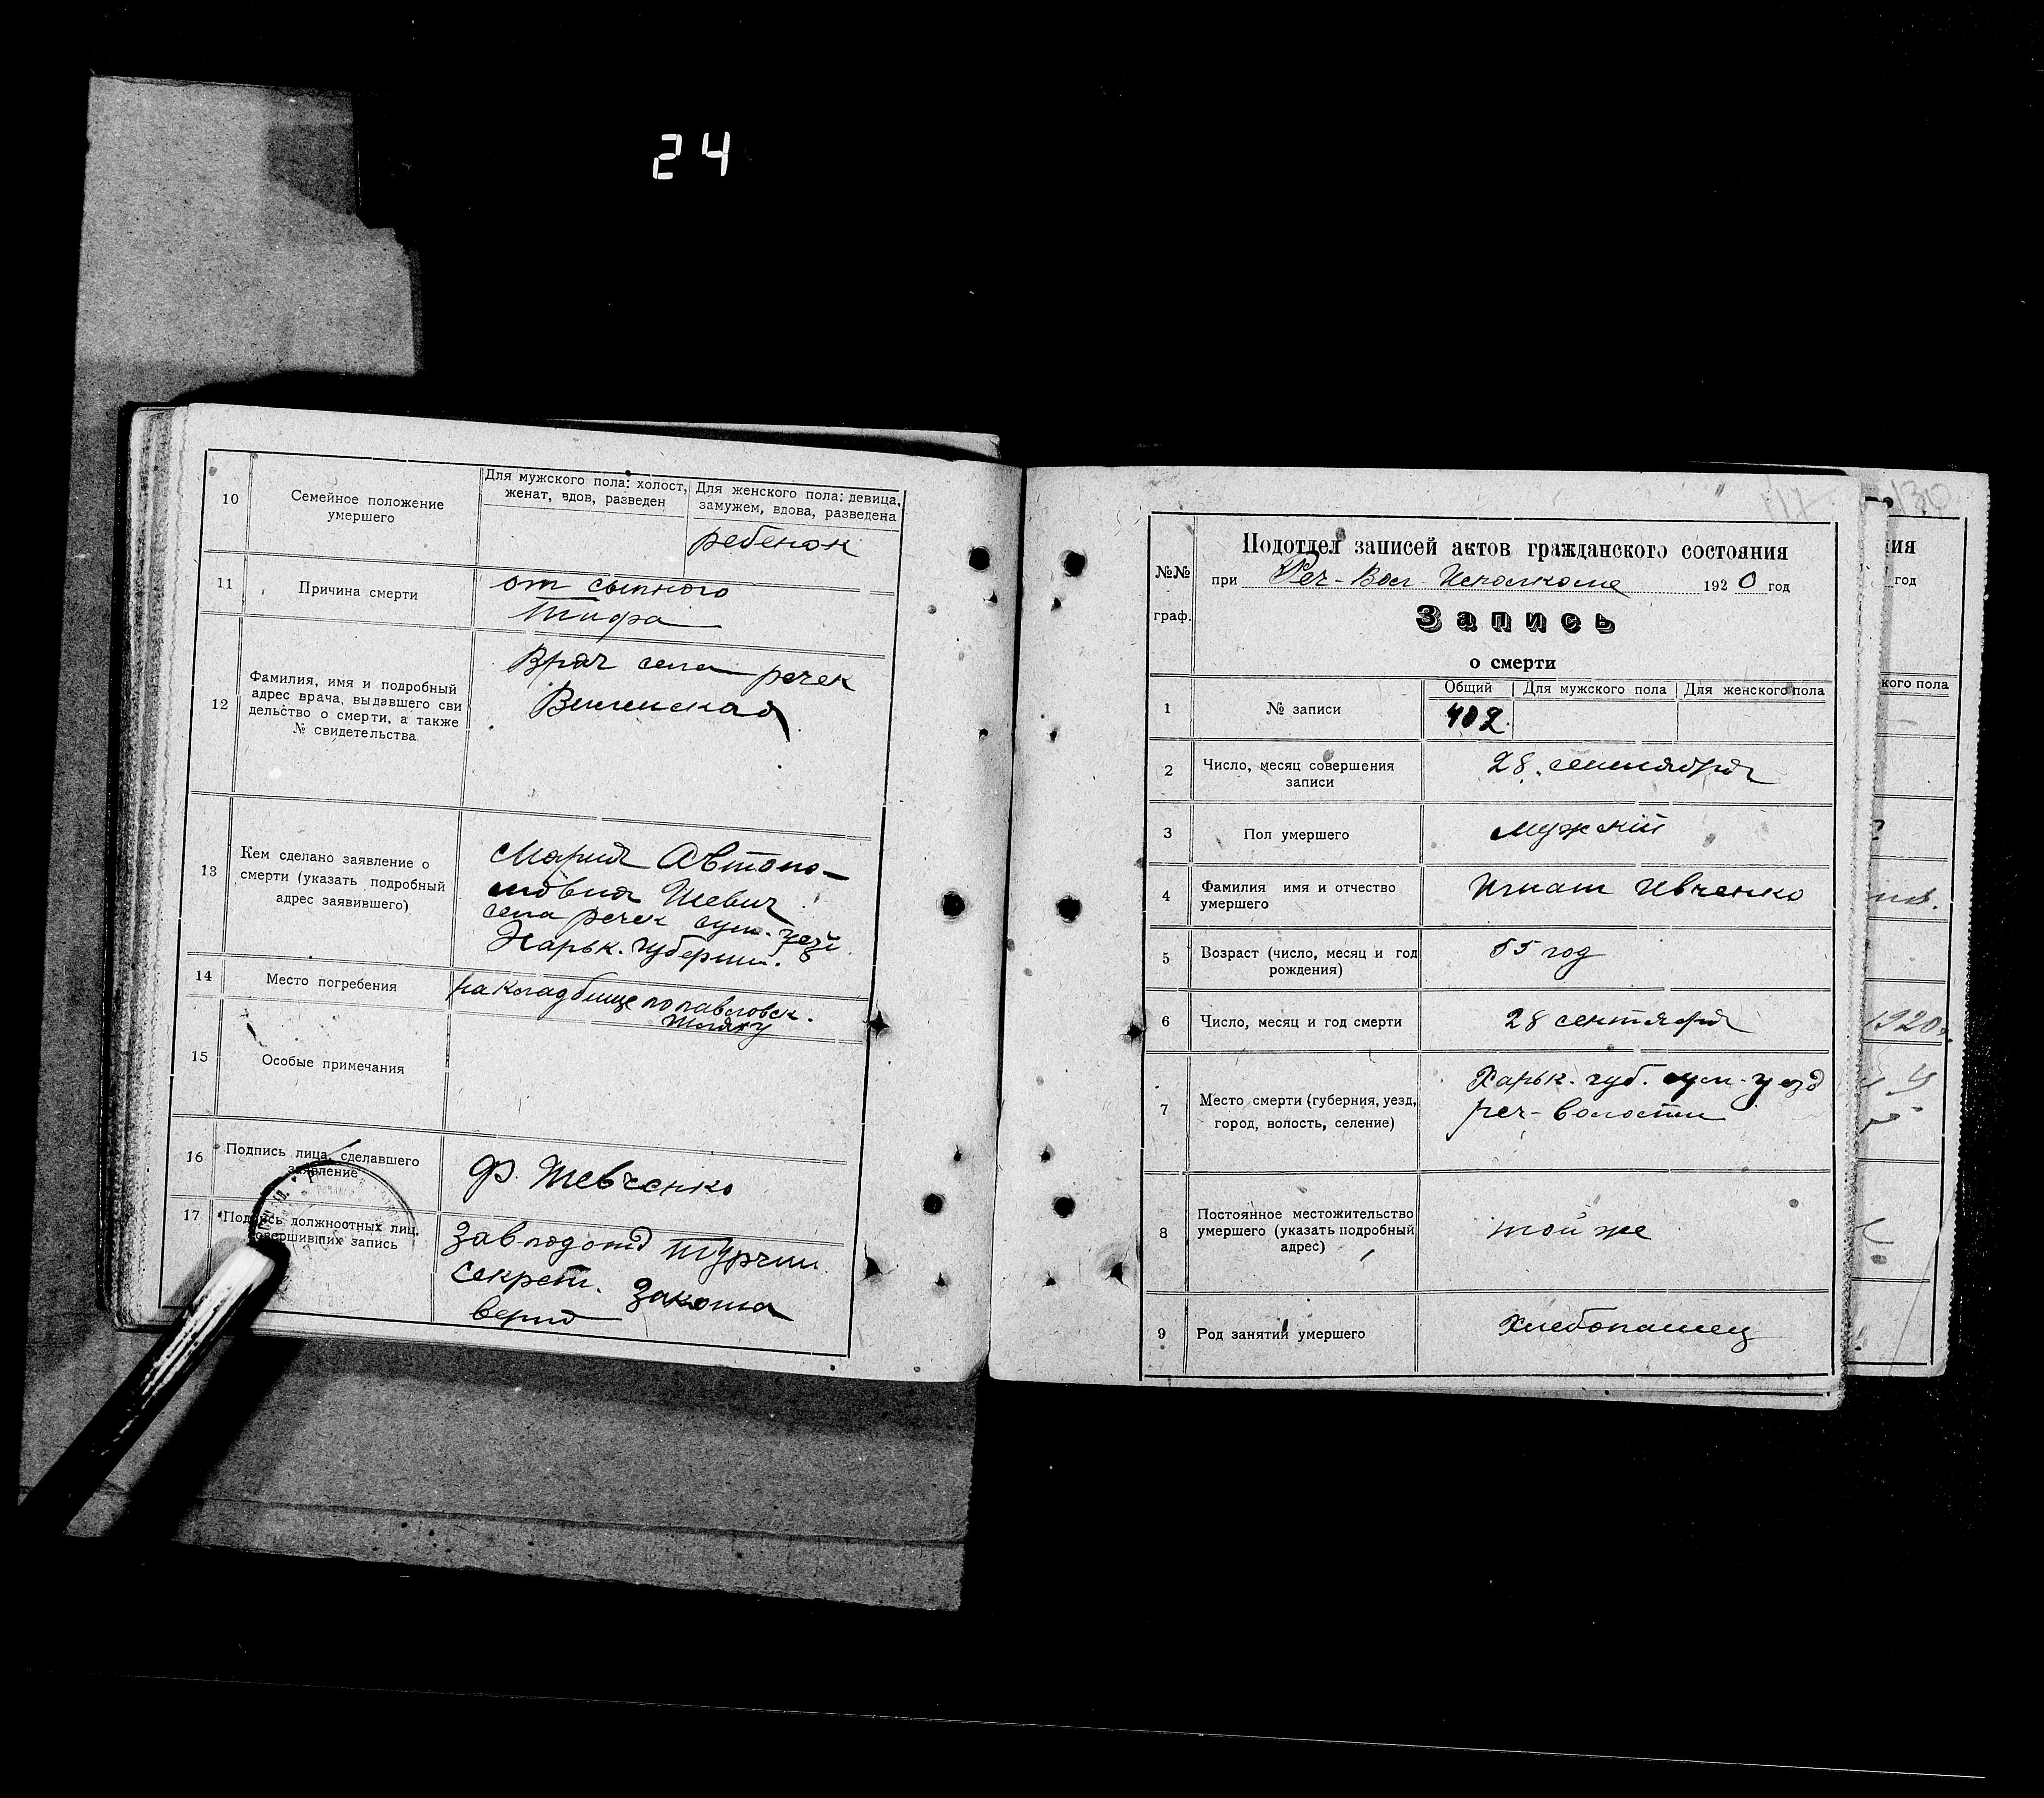 24
10
Семейное положение
умершего
Для мужского пола: холост,
женат, вдов, разведен
Для женского пола: девица,
замужем, вдова, разведена
ребенок
11
Причина смерти
от сыпного
тифа
12
Фамилия, имя и подробный
адрес врача, выдавшего сви
дельство о смерти, а также
№ свидетельства
Врач села речек
13
Кем сделано заявление о
смерти (указать подробный
адрес заявившего)
Мария Автоно-
мовна
села речек сум.
Харьк. губернии.
14
Место погребения
на кладбище по павловск.
шляху
15
Особые примечания
16
Подпись лица, сделавшего
заявление
Ф. Шевченко
17
Подпись должноотных лиц,
совершивших запись
Завподотд
секрет.
верно
117
130
№№
граф.
Подотдел записей актов гражданского состояния
при Реч-Вол-Исполкоме 1920 год
Запись
о смерти
Общий
Для мужского пола
Для женского пола
1
№ записи
402.
2
Число, месяц совершения
записи
28. сентября
3
Пол умершего
мужский
4
Фамилия имя и отчество
умершего
Игнат Ивченко
5
Возраст (число, месяц и год
рождения)
55 год
6
Число, месяц и год смерти
28 сентября
7
Место смерти (губерния, уезд,
город, волость, селение)
Харьк. губ. сум-уезд
реч-волости
8
Постоянное местожительство
умершего (указать подробный
адрес)
той же
9
Род занятий умершего
Хлебопашец
ия
год
кого пола
1920